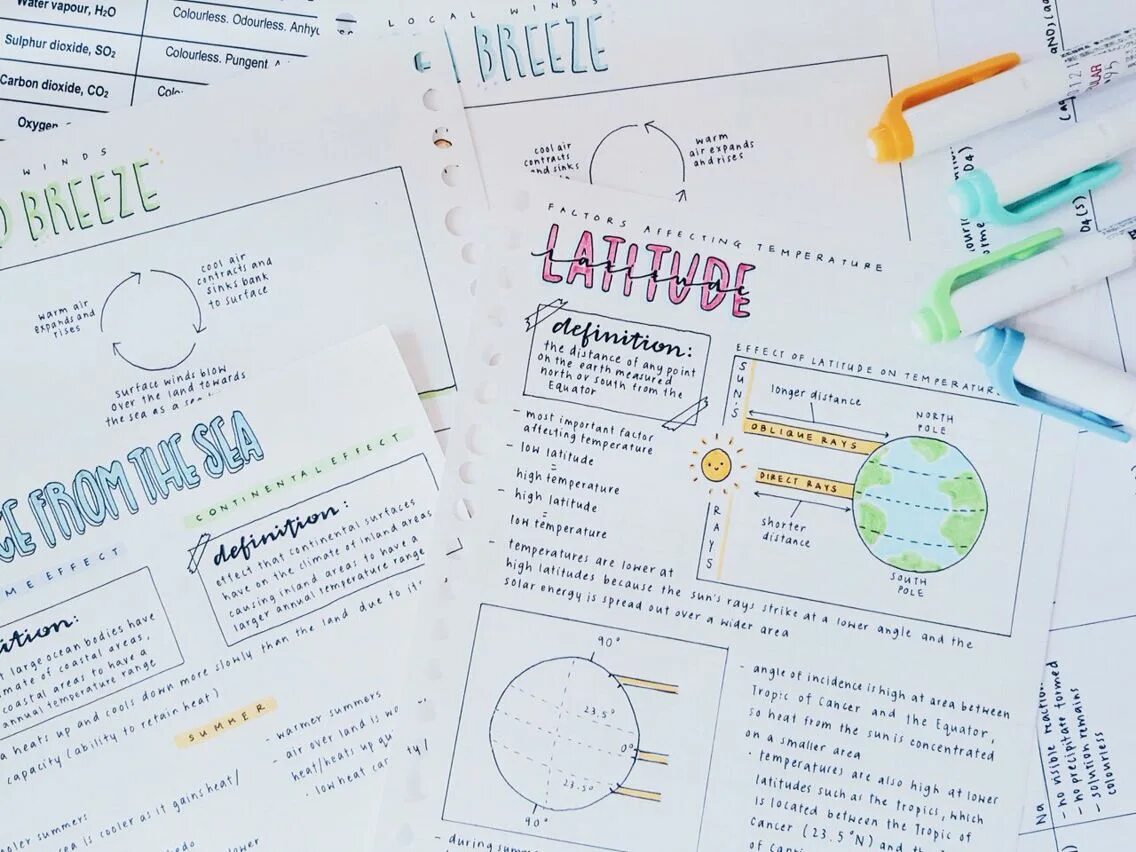 Water vapour, H₂O
Colourless. Odourless. Anhy
Sulphur dioxide, SO₂
Colourless. Pungent.
Carbon dioxide, CO₂
Oxygen
LOCAL WINDS
BREEZE
cool air
contracts
and sinks
warm
air expands
and rises
WINDS
BREEZE
warm air
expands and
rises
cool air
contracts and
sinks bank
to surface
surface winds blow
over the land towards
the sea as a
FROM THE SEA
CONTINENTAL EFFECT
definition:
effect that continental surfaces
have on the climate of inland areas
causing inland areas to have a
larger annual temperature range
EFFECT
large ocean bodies have
of coastal areas,
coastal areas to have a
annual temperature range
heats up and cools down more slowly than the land due to
capacity (ability to retain heat)
SUMMER
- warmer summers
air over land is
heat/heats up
- low heat
summers
is cooler as it gains heat/
lower
FACTORS AFFECTING TEMPERATURE
LATITUDE
latitude
definition:
the distance of any point
on the earth measured
north or south from the
Equator
- most important factor
affecting temperature
- low latitude
=
high temperature
- high latitude
=
low temperature
- temperatures are lower at
high latitudes because the sun's rays strike at a lower angle and the
solar energy is spread out over a wider area
EFFECT OF LATITUDE ON TEMPERATUR
SUN'S
RAYS
longer distance
OBLIQUE RAYS
DIRECT RAYS
shorter
distance
NORTH
POLE
SOUTH
POLE
90°
23.5°
0°
23.5°
90°
- angle of incidence is high at area between
Tropic of Cancer and the Equator,
so heat from the sun is concentrated
on a smaller area
• temperatures are also high at lower
latitudes such as the tropics, which
is located between the Tropic of
Cancer (23.5°N) and the
- during
Na
- no visible reaction
- no precipitate formed
- solution remains
colourless